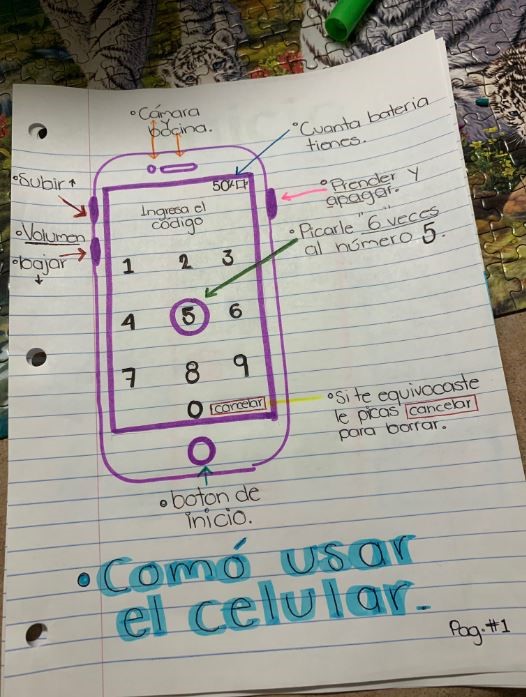 • Cámara
y
bocina.
• Cuanta bateria
tienes.
50%
• Subir ↑
• Prender y
apagar.
Ingresa el
codigo
• Volumen
• bajar
↓
• Picarle "6 veces"
al número 5.
1 2 3
4 5 6
7 8 9
0 cancelar
• Si te equivocaste
le picas cancelar
para borrar.
• boton de
inicio.
• Comó usar
el celular.
Pag. #1